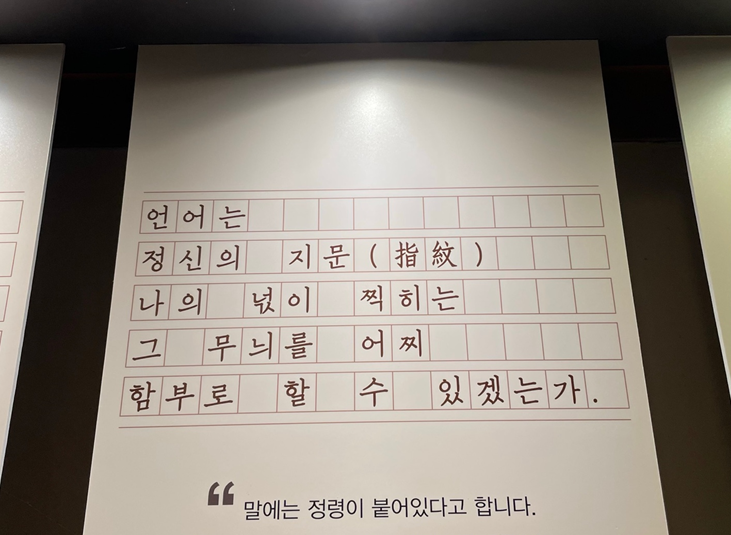 언어는
정신의 지문(指紋)
나의 넋이 찍히는
그 무늬를 어찌
함부로 할 수 있겠는가.
“ 말에는 정령이 붙어있다고 합니다.